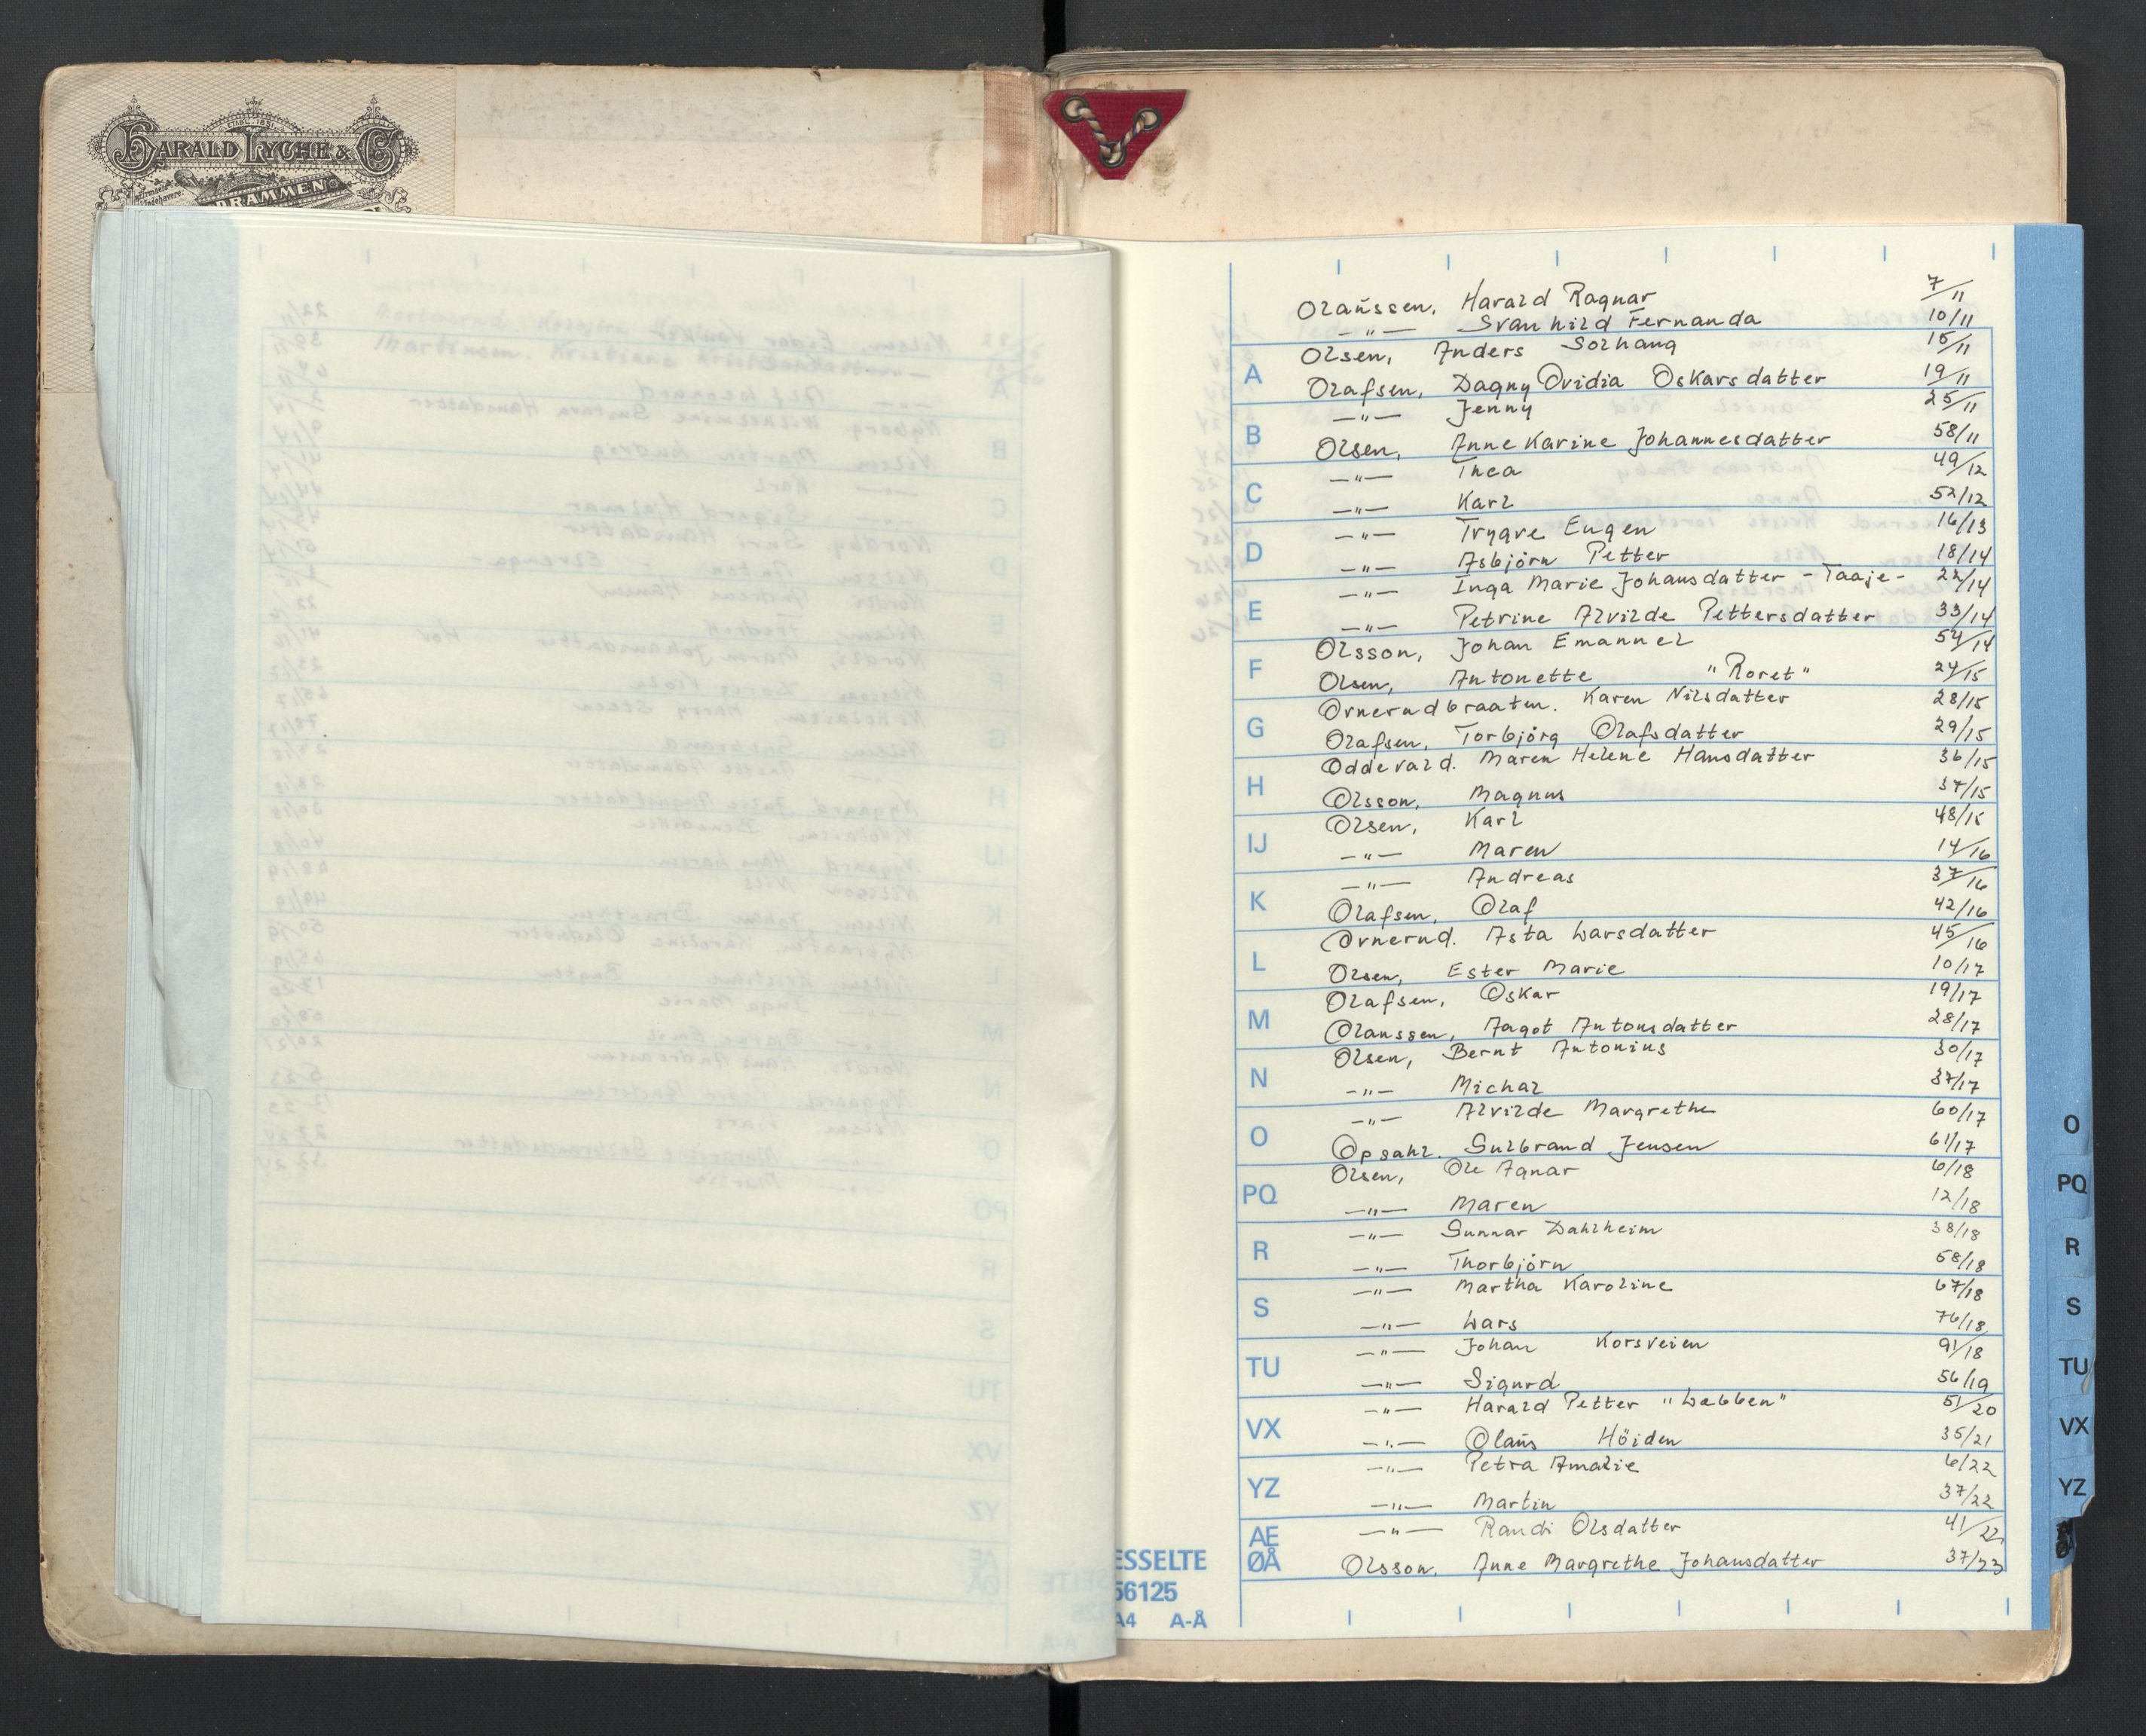 HARALD LYCHE & Co
DRAMMEN
Olaüssen, Harald Ragnar 7/11
—"— Svanhild Fernanda 10/11
Olsen, Anders Solhaug 15/11
Olafsen, Dagny Ovidia Oskarsdatter 19/11
—"— Jenny 25/11
Olsen, Anne Karine Johannesdatter 58/11
—"— Thea 49/12
—"— Karl 52/12
—"— Trygve Eugen 16/13
—"— Asbjörn Petter 18/14
—"— Inga Marie Johansdatter - Taaje - 22/14
—"— Petrine Alvilde Pettersdatter 33/14
Olsson, Johan Emanuel 54/14
Olsen, Antonette "Roret" 24/15
Ovnerudbraaten. Karen Nilsdatter 28/15
Olafsen, Torbjörg Olafsdatter 29/15
Oddevald. Maren Helene Hansdatter 36/15
Olsson, Magnus 37/15
Olsen, Karl 48/15
—"— Maren 14/16
—"— Andreas 37/16
Olafsen, Olaf 42/16
Ovnerud. Asta Larsdatter 45/16
Olsen, Ester Marie 10/17
Olafsen, Oskar 19/17
Olaussen, Aagot Antonsdatter 28/17
Olsen, Bernt Antonius 30/17
—"— Michal 37/17
—"— Alvilde Margrethe 60/17
Opsahl. Gulbrand Jensen 61/17
Olsen, Ole Agnar 6/18
—"— Maren 12/18
—"— Gunnar Dahlheim 38/18
—"— Thorbjörn 58/18
—"— Martha Karoline 67/18
—"— Lars 76/18
—"— Johan Korsveien 91/18
—"— Sigurd 56/19
—"— Harald Petter "Labben" 51/20
—"— Olaüs Höiden 35/21
—"— Petra Amalie 6/22
—"— Martin 37/22
—"— Randi Olsdatter 41/22
Olsson, Anne Margrethe Johansdatter 37/23
A
B
C
D
E
F
G
H
IJ
K
L
M
N
O
PQ
R
S
TU
VX
YZ
AE
ØÅ
ESSELTE
56125
A4 A-Å
O
PQ
R
S
TU
VX
YZ